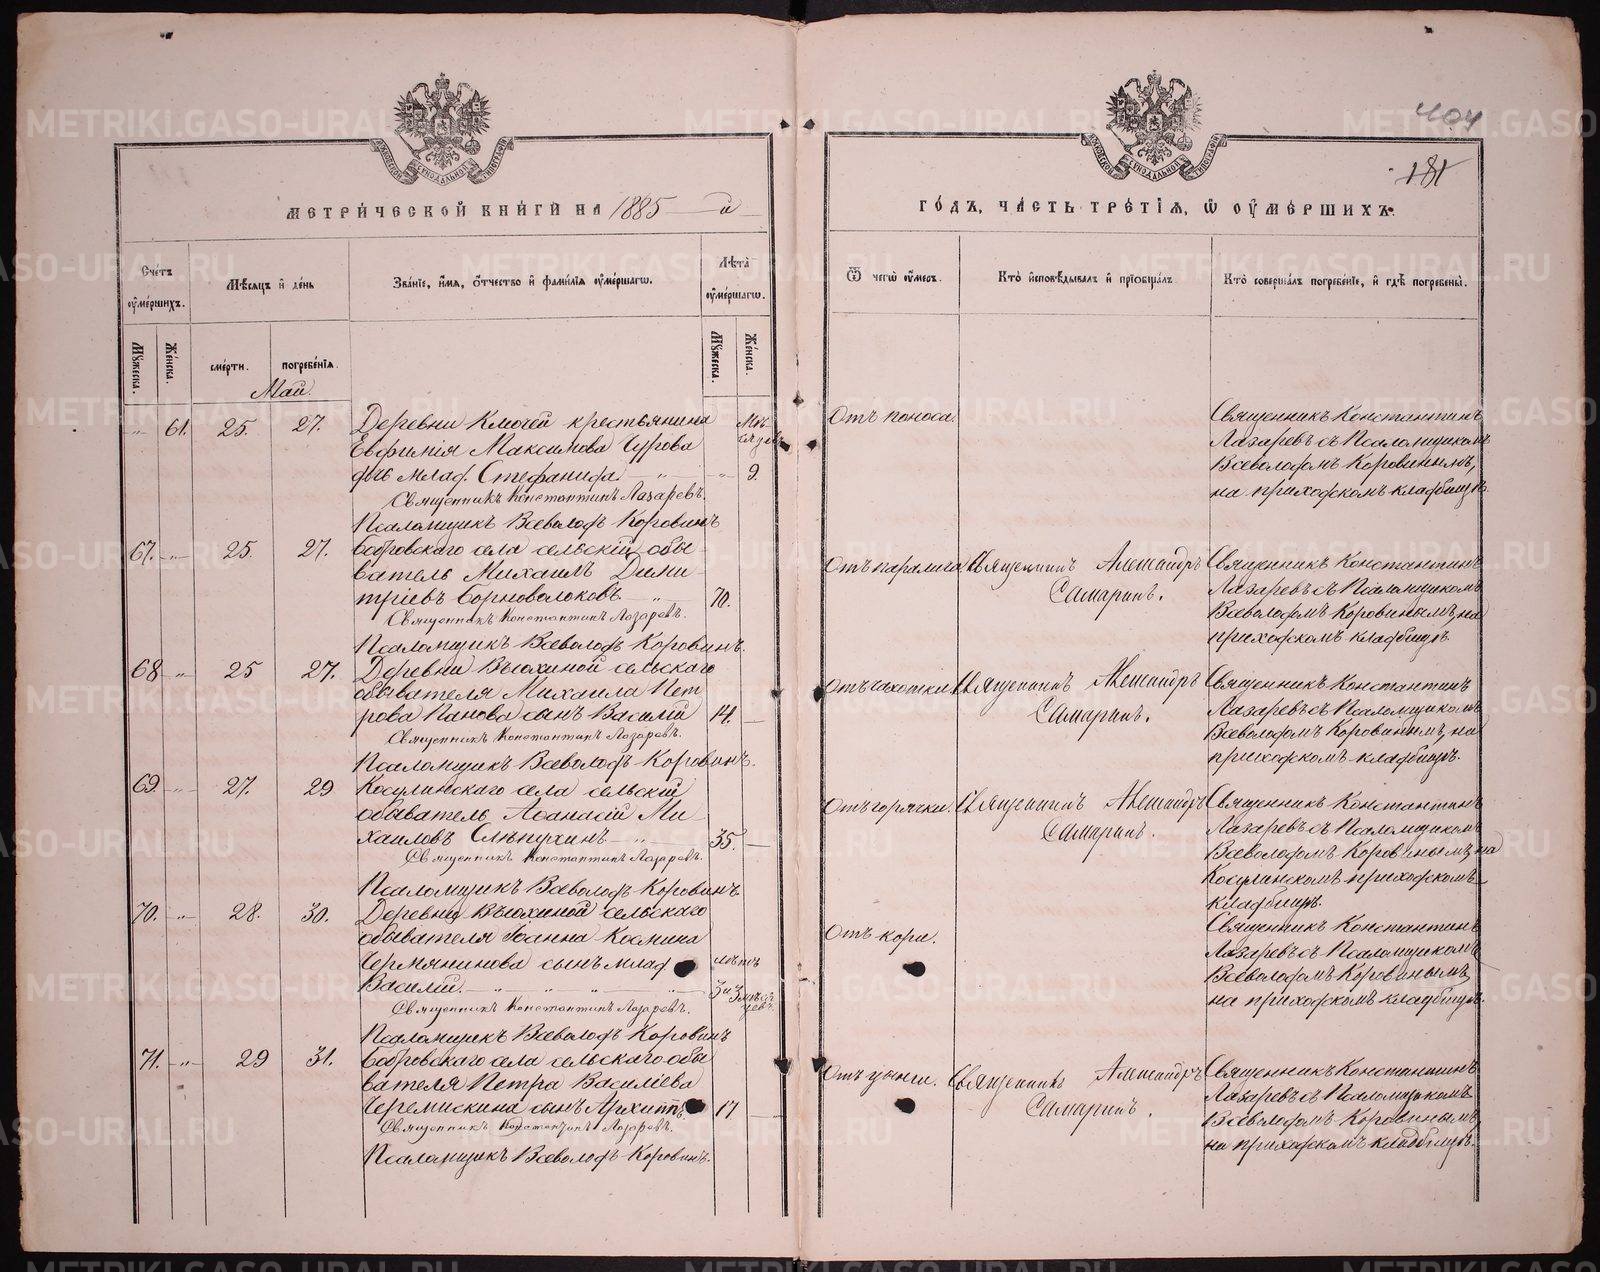 404
181
МЕТРИ́ЧЕСКОЙ КНИ́ГИ НА 1885 й
ГО́ДЪ, ЧА́СТЬ ТРЕ́ТІѦ, Ѽ ОУ҆МЕ́РШИХЪ.
Сче́тъ оу҆ме́ршихъ.
Мѣ́сѧцъ и҆ де́нь
Зва́нїе, и҆́мѧ, ѻ҆́тчество и҆ фамилїѧ оу҆ме́ршагѡ.
Лѣ́та оу҆ме́ршагѡ.
Ѿ чегѡ̀ оу҆́меръ.
Кто̀ и҆сповѣ́дывалъ и҆ прїѡбща́лъ.
Кто̀ соверша́лъ погребе́нїе, и҆ гдѣ̀ погребены̀.
Мꙋ́жеска.
Же́нска.
сме́рти.
погребе́нїѧ.
Мꙋ́жеска.
Же́нска.
Май
„ 61. 25. 27. Деревни Ключей крестьянина
Евфимія Максимова Чурова
дчь млад. Стефанида „ „ 9.
Мѣ-
сяцев
Священникъ Константинъ Лазаревъ.
Псаломщикъ Всеволодъ Коровинъ
Отъ поноса.
Священникъ Константинъ
Лазаревъ съ Псаломщикомъ
Всеволодомъ Коровинымъ,
на приходскомъ кладбищѣ.
67. „ 25. 27. Бобровскаго села сельскій обы-
ватель Михаилъ Дими-
тріевъ Сорноволоковъ „ 70.
Священникъ Константинъ Лазаревъ.
Псаломщикъ Всеволодъ Коровинъ.
Отъ паралича.
Священникъ Александръ
Самаринъ.
Священникъ Константинъ
Лазаревъ съ Псаломщикомъ
Всеволодомъ Коровинымъ, на
приходскомъ кладбищѣ
68 „ 25 27. Деревни Вьюхиной сельскаго
обывателя Михаила Пет
рова Панова сынъ Василій 14.
Священникъ Константинъ Лазаревъ.
Псаломщикъ Всеволодъ Коровинъ.
Отъ чахотки.
Священникъ Александръ
Самаринъ.
Священникъ Константинъ
Лазаревъ съ Псаломщикомъ
Всеволодомъ Коровинымъ, на
приходскомъ кладбищѣ.
69 „ 27. 29 Косулинскаго села сельскій
обыватель Аѳанасій Ми-
хаиловъ Слѣпухинъ „ 35.
Священникъ Константинъ Лазаревъ.
Псаломщикъ Всеволодъ Коровинъ
Отъ горячки.
Священникъ Александръ
Самаринъ.
Священникъ Константинъ
Лазаревъ съ Псаломщикомъ
Всеволодомъ Коровинымъ, на
Косулинскомъ приходскомъ
кладбищѣ.
70. „ 28. 30. Деревни Вьюхиной сельскаго
обывателя Іоанна Космина
Чермянинова сынъ млад
Василій. „ „ „ „
лѣтъ
3 и 3 мѣся
цев.
Священникъ Константинъ Лазаревъ.
Псаломщикъ Всеволодъ Коровинъ
Отъ кори.
Священникъ Константинъ
Лазаревъ съ Псаломщикомъ
Всеволодомъ Коровинымъ,
на приходскомъ кладбищѣ.
71. „ 29 31. Бобровскаго села сельскаго обы
вателя Петра Василіева
Черемискина сынъ Архиппъ 17
Священникъ Константинъ Лазаревъ.
Псаломщикъ Всеволодъ Коровинъ.
Отъ цынги.
Священникъ Александръ
Самаринъ.
Священникъ Константинъ
Лазаревъ съ Псаломщикомъ
Всеволодомъ Коровинымъ,
на приходскомъ кладбищѣ.
METRIKI.GASO-URAL.RU